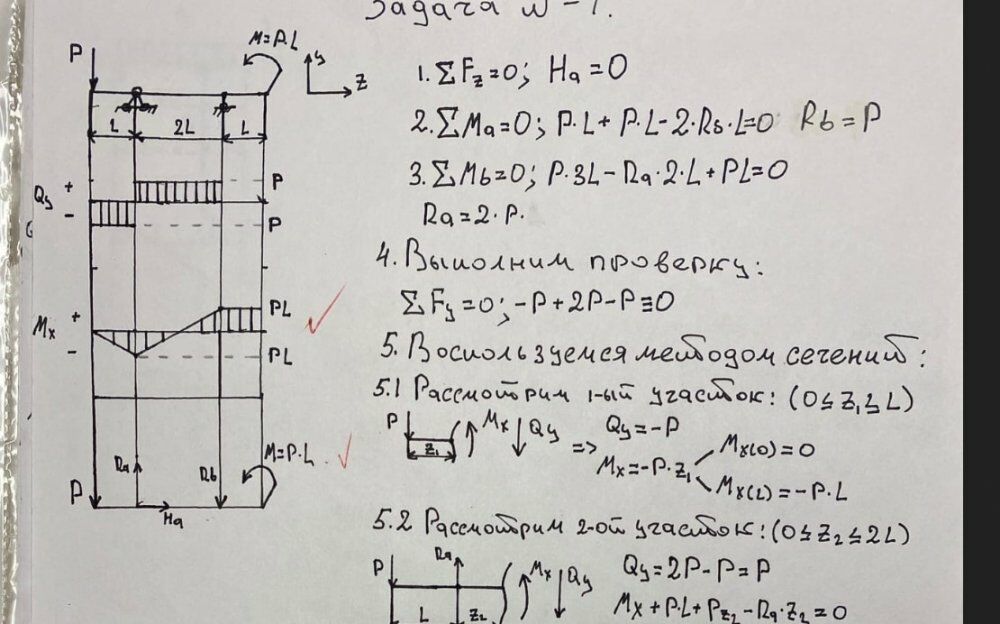 Задача N-1.
P
M=P.L
y
z
L
2L
L
Qy
+
-
P
P
Mx
+
-
PL
PL
Ra
Rb
M=P.L
P
Ha
1. ΣFz=0; Ha=0
2. ΣMa=0; P.L+P.L-2.Rb.L=0 Rb=P
3. ΣMb=0; P.3L-Ra.2.L+PL=0
Ra=2.P.
4. Выполним проверку:
ΣFy=0; -P+2P-P≡0
5. Воспользуемся методом сечений:
5.1 Рассмотрим 1-ый участок: (0≤z₁≤L)
P
z₁
Mx
Qy
=>
Qy=-P
Mx=-P.z₁
Mx(0)=0
Mx(L)=-P.L
5.2 Рассмотрим 2-ой участок: (0≤z₂≤2L)
P
Ra
L
z₂
Mx
Qy
Qy=2P-P=P
Mx+P.L+Pz₂-Ra.z₂=0